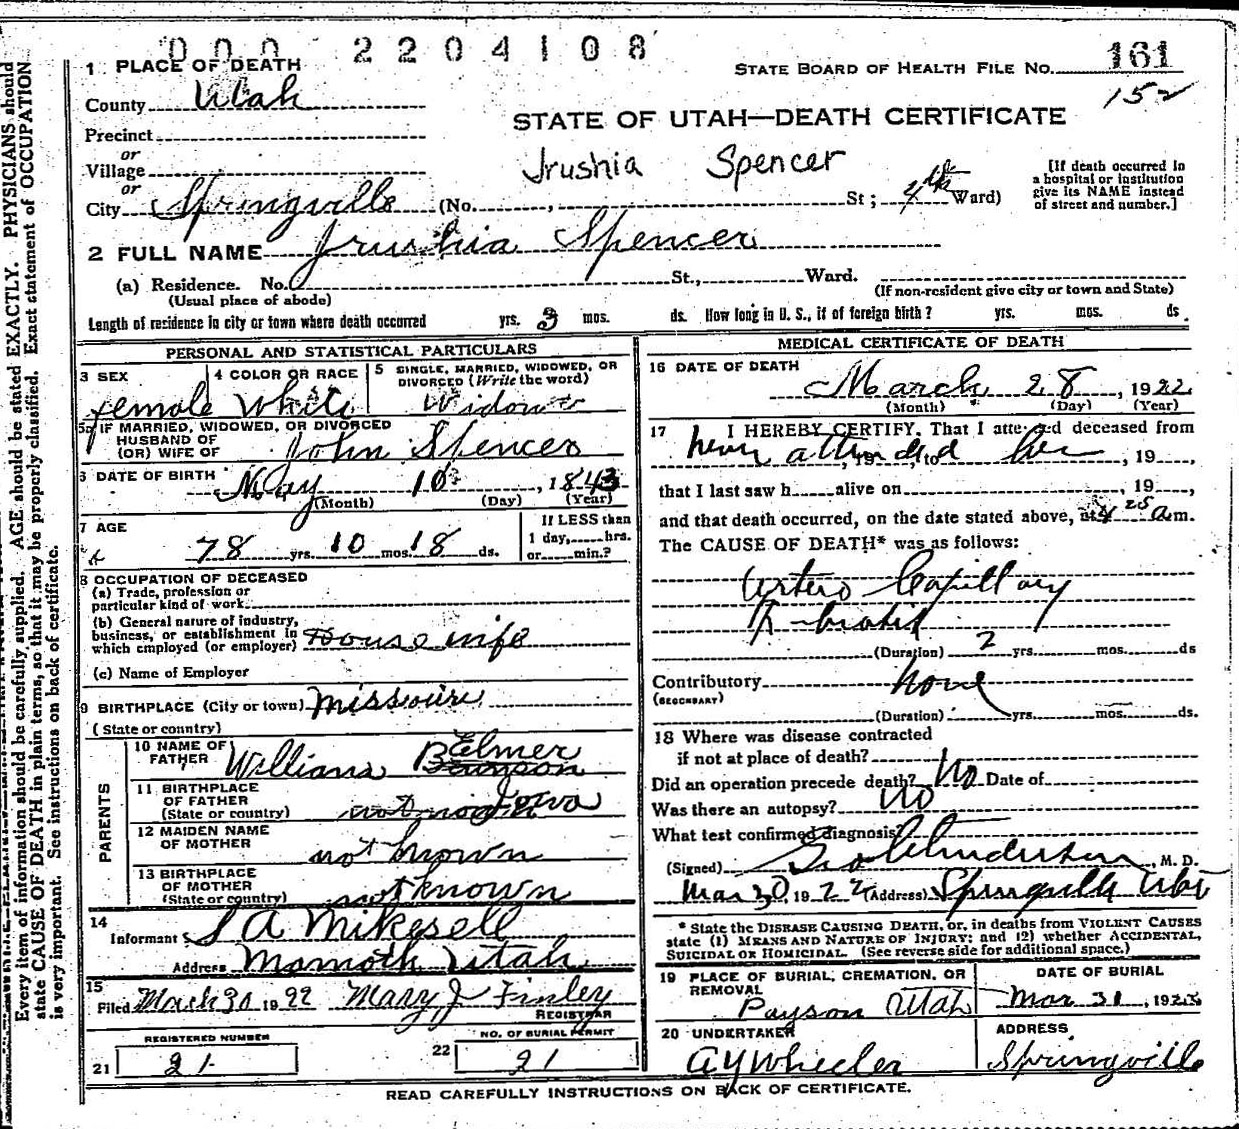 000 2204108
161
STATE BOARD OF HEALTH FILE No.
152
1 PLACE OF DEATH
County Utah
STATE OF UTAH—DEATH CERTIFICATE
Precinct
or
Village
Jrushia Spencer
[If death occurred in
a hospital or institution
give its NAME instead
of street and number.]
or
City Springville (No. , St; 4th Ward)
2 FULL NAME Jrushia Spencer
(a) Residence. No. St., Ward.
(Usual place of abode)
(If non-resident give city or town and State)
Length of residence in city or town where death occurred yrs. 3 mos. ds. How long in U. S., if of foreign birth? yrs. mos. ds.
PERSONAL AND STATISTICAL PARTICULARS
3 SEX
female
4 COLOR OR RACE
White
5 SINGLE, MARRIED, WIDOWED, OR
DIVORCED (Write the word)
Widow
5a IF MARRIED, WIDOWED, OR DIVORCED
HUSBAND OF
(OR) WIFE OF John Spencer
6 DATE OF BIRTH May 10 , 1843
(Month) (Day) (Year)
7 AGE
78 yrs. 10 mos. 18 ds.
If LESS than
1 day, hrs.
or min.?
8 OCCUPATION OF DECEASED
(a) Trade, profession or
particular kind of work
(b) General nature of industry,
business, or establishment in
which employed (or employer) House wife
(c) Name of Employer
9 BIRTHPLACE (City or town) Missouri
(State or country)
PARENTS
10 NAME OF
FATHER William Elmer
11 BIRTHPLACE
OF FATHER
(State or country) Iowa
12 MAIDEN NAME
OF MOTHER not known
13 BIRTHPLACE
OF MOTHER
(State or country) not known
14
Informant S A Mikesell
Address Mamoth Utah
15
Filed March 30 1922 Mary J Finley
REGISTRAR
REGISTERED NUMBER
21 21
NO. OF BURIAL PERMIT
22 21
MEDICAL CERTIFICATE OF DEATH
16 DATE OF DEATH
March 28 , 1922
(Month) (Day) (Year)
17 I HEREBY CERTIFY, That I attended deceased from
never attended her , 19 , to , 19 ,
that I last saw h alive on , 19 ,
and that death occurred, on the date stated above, at 4 25 a m.
The CAUSE OF DEATH* was as follows:
Artero Capillary
(Duration) 2 yrs. mos. ds
Contributory none
(SECONDARY)
(Duration) yrs. mos. ds.
18 Where was disease contracted
if not at place of death?
Did an operation precede death? No Date of
Was there an autopsy? no
What test confirmed diagnosis?
(Signed) Geo Anderson , M. D.
Mar 30, 1922 (Address) Springville Utah
* State the DISEASE CAUSING DEATH, or, in deaths from VIOLENT CAUSES
state (1) MEANS AND NATURE OF INJURY; and (2) whether ACCIDENTAL,
SUICIDAL OR HOMICIDAL. (See reverse side for additional space.)
19 PLACE OF BURIAL, CREMATION, OR
REMOVAL
Payson Utah
DATE OF BURIAL
Mar 31 , 1922
20 UNDERTAKER
A Y Wheeler
ADDRESS
Springville
READ CAREFULLY INSTRUCTIONS ON BACK OF CERTIFICATE.
Every item of information should be carefully supplied. AGE should be stated EXACTLY. PHYSICIANS should
state CAUSE OF DEATH in plain terms, so that it may be properly classified. Exact statement of OCCUPATION
is very important. See instructions on back of certificate.